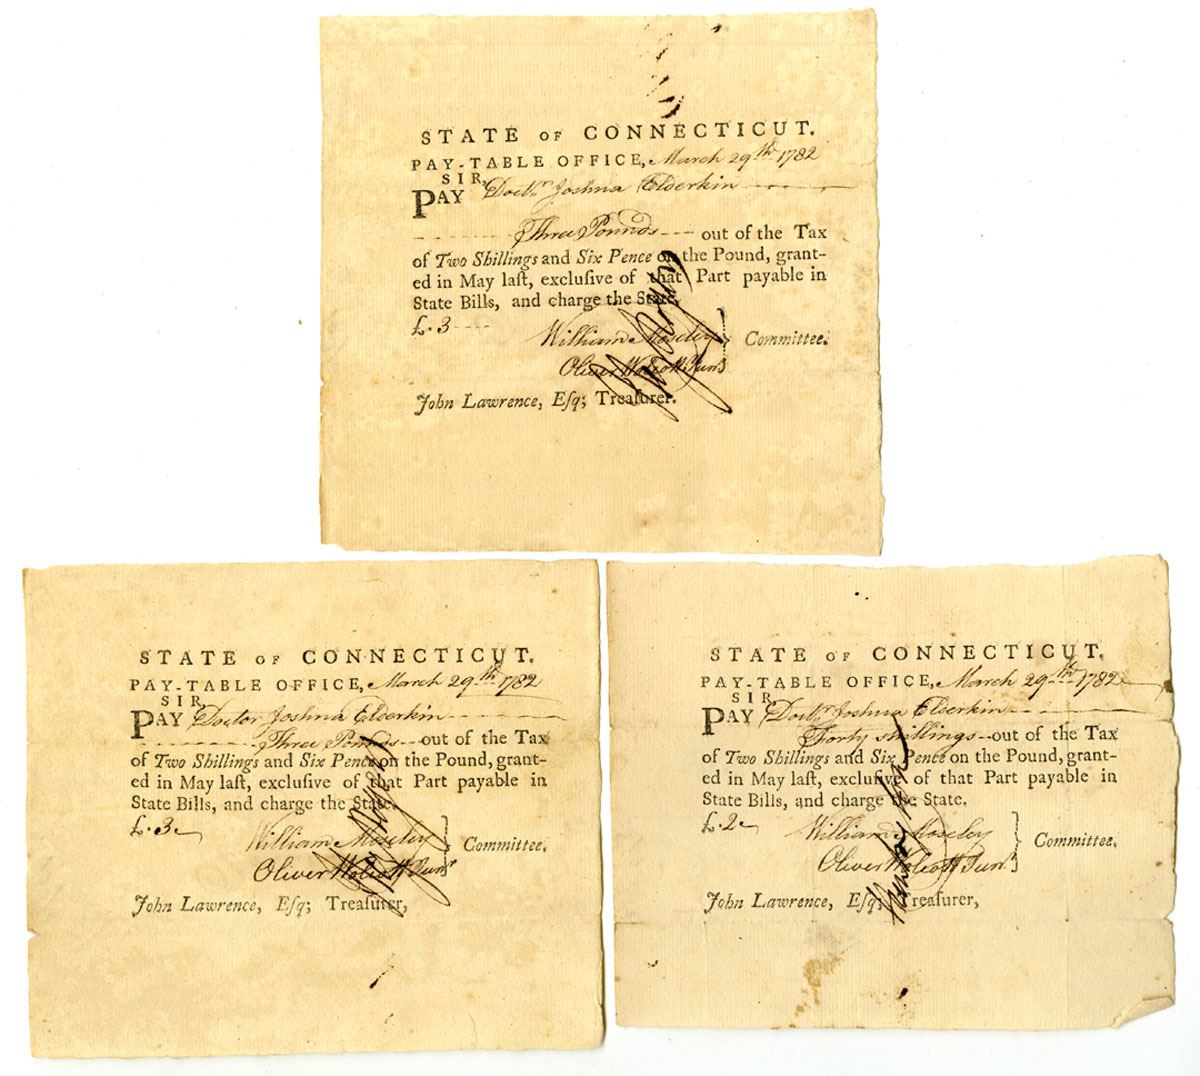 STATE OF CONNECTICUT.
PAY-TABLE OFFICE, March 29th 1782
SIR,
PAY Doctr Joshua Elderkin
Three Pounds out of the Tax
of Two Shillings and Six Pence on the Pound, grant-
ed in May laſt, excluſive of that Part payable in
State Bills, and charge the State.
£.3
William Moseley
Committee.
Oliver Wolcott Junr
John Lawrence, Eſq; Treaſurer.
STATE OF CONNECTICUT.
PAY-TABLE OFFICE, March 29th 1782
SIR,
PAY Doctor Joshua Elderkin
Three Pounds out of the Tax
of Two Shillings and Six Pence on the Pound, grant-
ed in May laſt, excluſive of that Part payable in
State Bills, and charge the State.
£.3
William Moseley
Committee.
Oliver Wolcott Junr
John Lawrence, Eſq; Treaſurer,
STATE OF CONNECTICUT.
PAY-TABLE OFFICE, March 29th 1782
SIR,
PAY Doctr Joshua Elderkin
Forty Shillings out of the Tax
of Two Shillings and Six Pence on the Pound, grant-
ed in May laſt, excluſive of that Part payable in
State Bills, and charge the State.
£.2
William Moseley
Committee.
Oliver Wolcott Junr
John Lawrence, Eſq; Treaſurer,